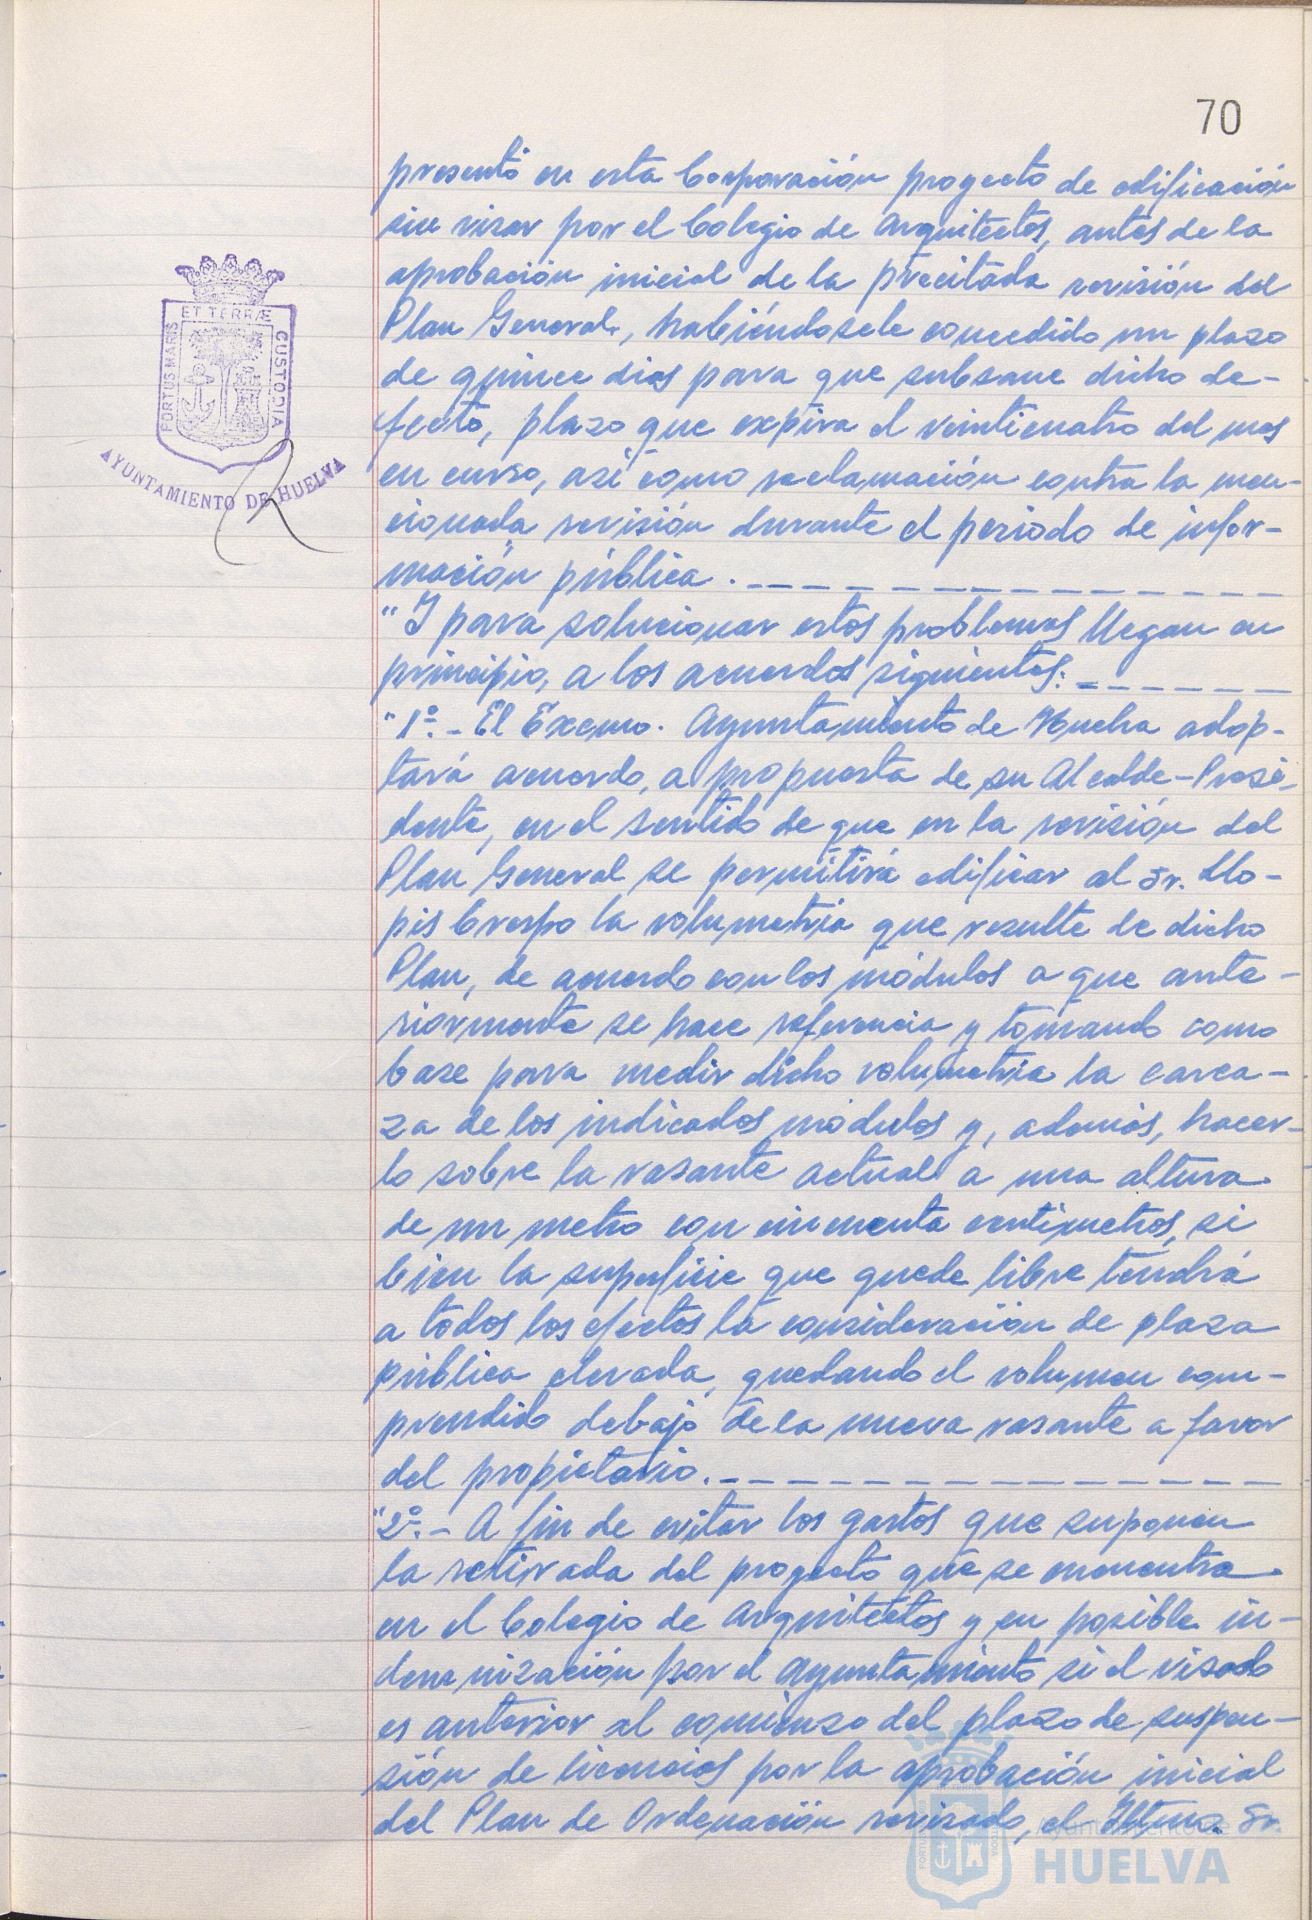 70
presentó en esta Corporación proyecto de edificación
sin visar por el Colegio de Arquitectos, antes de la
aprobación inicial de la precitada revisión del
Plan General, habiéndosele concedido un plazo
de quince dias para que subsane dicho de-
fecto, plazo que expira el veinticuatro del mes
en curso, así como reclamación contra la men-
cionada revisión durante el periodo de infor-
mación pública.
"Y para solucionar estos problemas llegan en
principio, a los acuerdos siguientes:
"1º.- El Excmo. Ayuntamiento de Huelva adop-
tará acuerdo, a propuesta de su Alcalde-Presi-
dente, en el sentido de que en la revisión del
Plan General se permitirá edificar al Sr. Llo-
pis Crespo la volumetria que resulte de dicho
Plan, de acuerdo con los módulos a que ante-
riormente se hace referencia y tomando como
base para medir dicho volumetria la carca-
za de los indicados módulos y, además, hacer-
lo sobre la rasante actual a una altura
de un metro con cincuenta centimetros, si
bien la superficie que quede libre tendrá
a todos los efectos la consideración de plaza
pública elevada, quedando el volumen com-
prendido debajo de la nueva rasante a favor
del propietario.
"2º.- A fin de evitar los gastos que suponen
la retirada del proyecto que se encuentra
en el Colegio de Arquitectos y su posible in-
demnización por el Ayuntamiento si el visado
es anterior al comienzo del plazo de suspen-
sión de licencias por la aprobación inicial
del Plan de Ordenación revisado, el Iltmo. Sr.
PORTUS MARIS
ET TERRÆ
CUSTODIA
AYUNTAMIENTO DE HUELVA
Ayuntamiento de
HUELVA